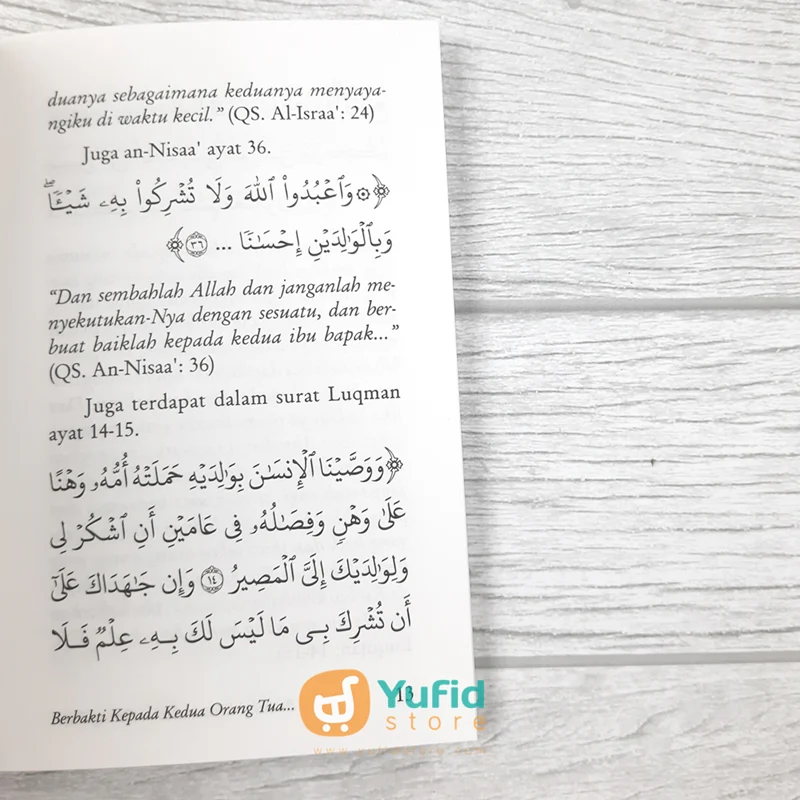 duanya sebagaimana keduanya menyaya-
ngiku di waktu kecil." (QS. Al-Israa': 24)
Juga an-Nisaa' ayat 36.
﴿۞ وَٱعۡبُدُواْ ٱللَّهَ وَلَا تُشۡرِكُواْ بِهِۦ شَيۡـٔٗاۖ
وَبِٱلۡوَٰلِدَيۡنِ إِحۡسَٰنٗا ... ٣٦﴾
"Dan sembahlah Allah dan janganlah me-
nyekutukan-Nya dengan sesuatu, dan ber-
buat baiklah kepada kedua ibu bapak..."
(QS. An-Nisaa': 36)
Juga terdapat dalam surat Luqman
ayat 14-15.
﴿وَوَصَّيۡنَا ٱلۡإِنسَٰنَ بِوَٰلِدَيۡهِ حَمَلَتۡهُ أُمُّهُۥ وَهۡنًا
عَلَىٰ وَهۡنٖ وَفِصَٰلُهُۥ فِي عَامَيۡنِ أَنِ ٱشۡكُرۡ لِي
وَلِوَٰلِدَيۡكَ إِلَيَّ ٱلۡمَصِيرُ ١٤ وَإِن جَٰهَدَاكَ عَلَىٰٓ
أَن تُشۡرِكَ بِي مَا لَيۡسَ لَكَ بِهِۦ عِلۡمٞ فَلَا
Berbakti Kepada Kedua Orang Tua...
13
Yufid
store